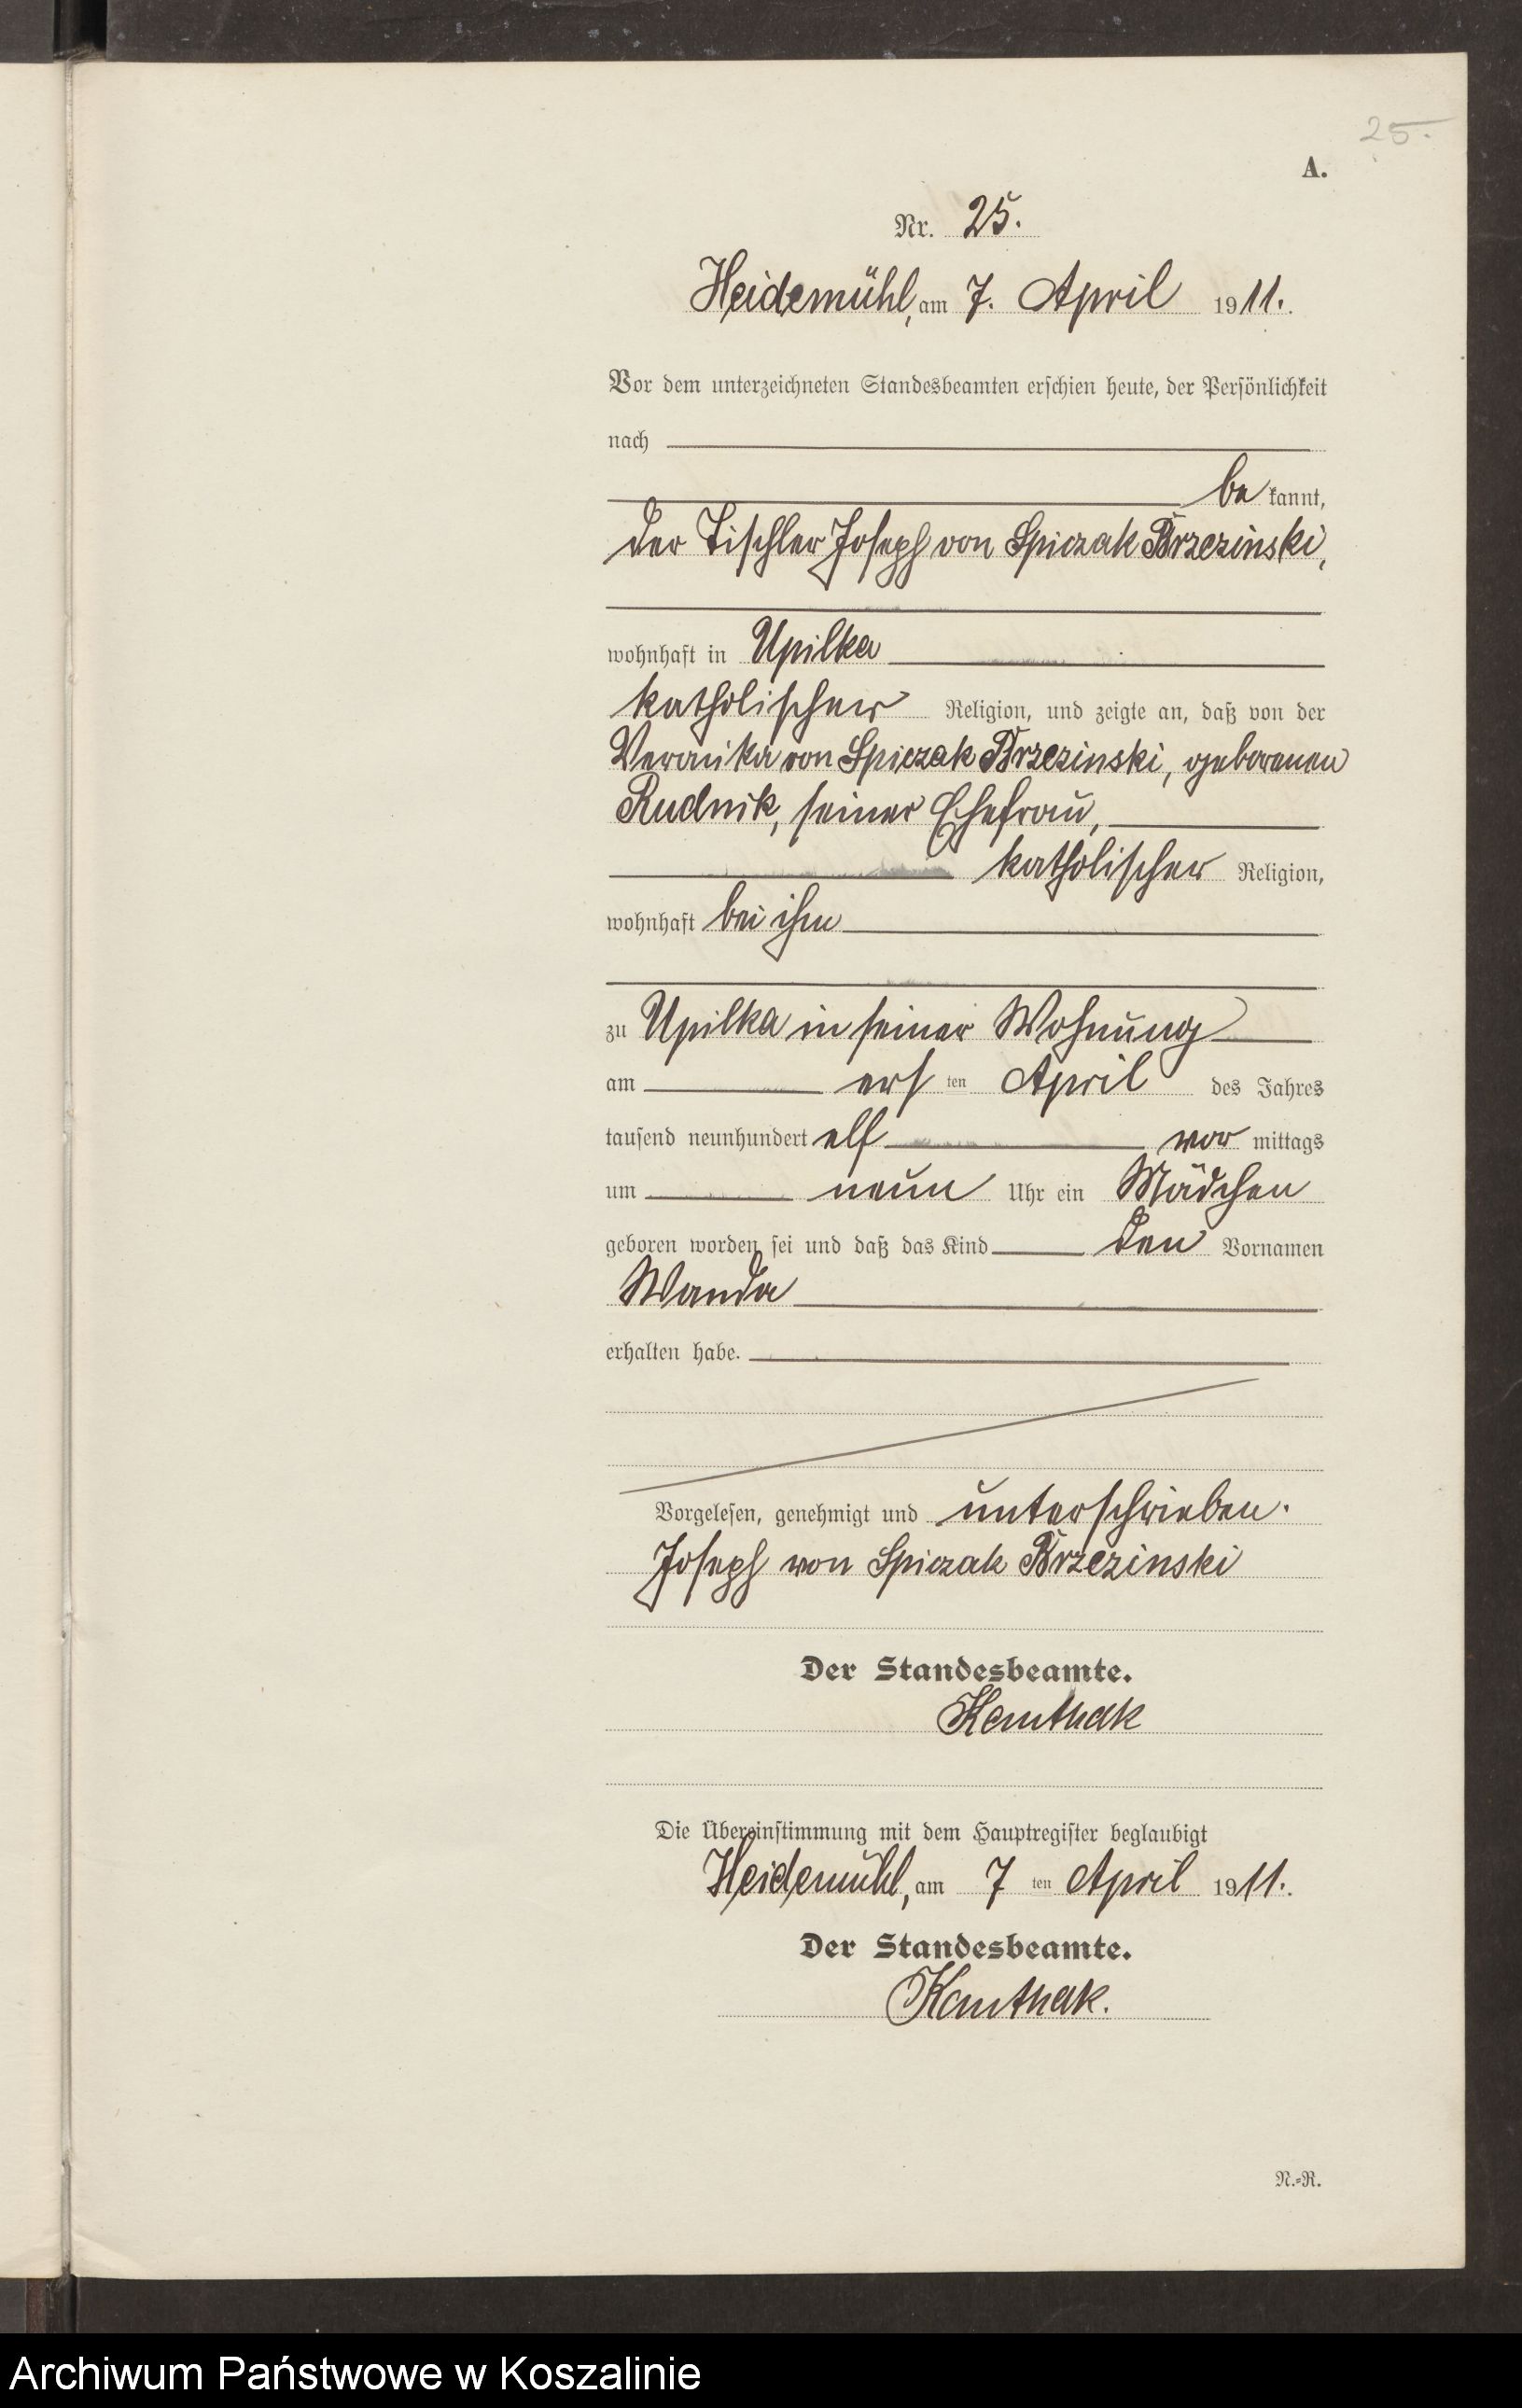 25.
A.
Nr. 25.
Heidemühl, am 7. April 1911.
Vor dem unterzeichneten Standesbeamten erschien heute, der Persönlichkeit
nach
be kannt,
der Tischler Joseph von Spiczak Brzezinski,
wohnhaft in Upilka
katholischer Religion, und zeigte an, daß von der
Veronika von Spiczak Brzezinski, geborenen
Rudnik, seiner Ehefrau,
katholischer Religion,
wohnhaft bei ihm
zu Upilka in seiner Wohnung
am ersten April des Jahres
tausend neunhundert elf vor mittags
um neun Uhr ein Mädchen
geboren worden sei und daß das Kind den Vornamen
Wanda
erhalten habe.
Vorgelesen, genehmigt und unterschrieben.
Joseph von Spiczak Brzezinski
Der Standesbeamte.
Die Übereinstimmung mit dem Hauptregister beglaubigt
Heidemühl, am 7 ten April 1911.
Der Standesbeamte.
N.=R.
Archiwum Państwowe w Koszalinie